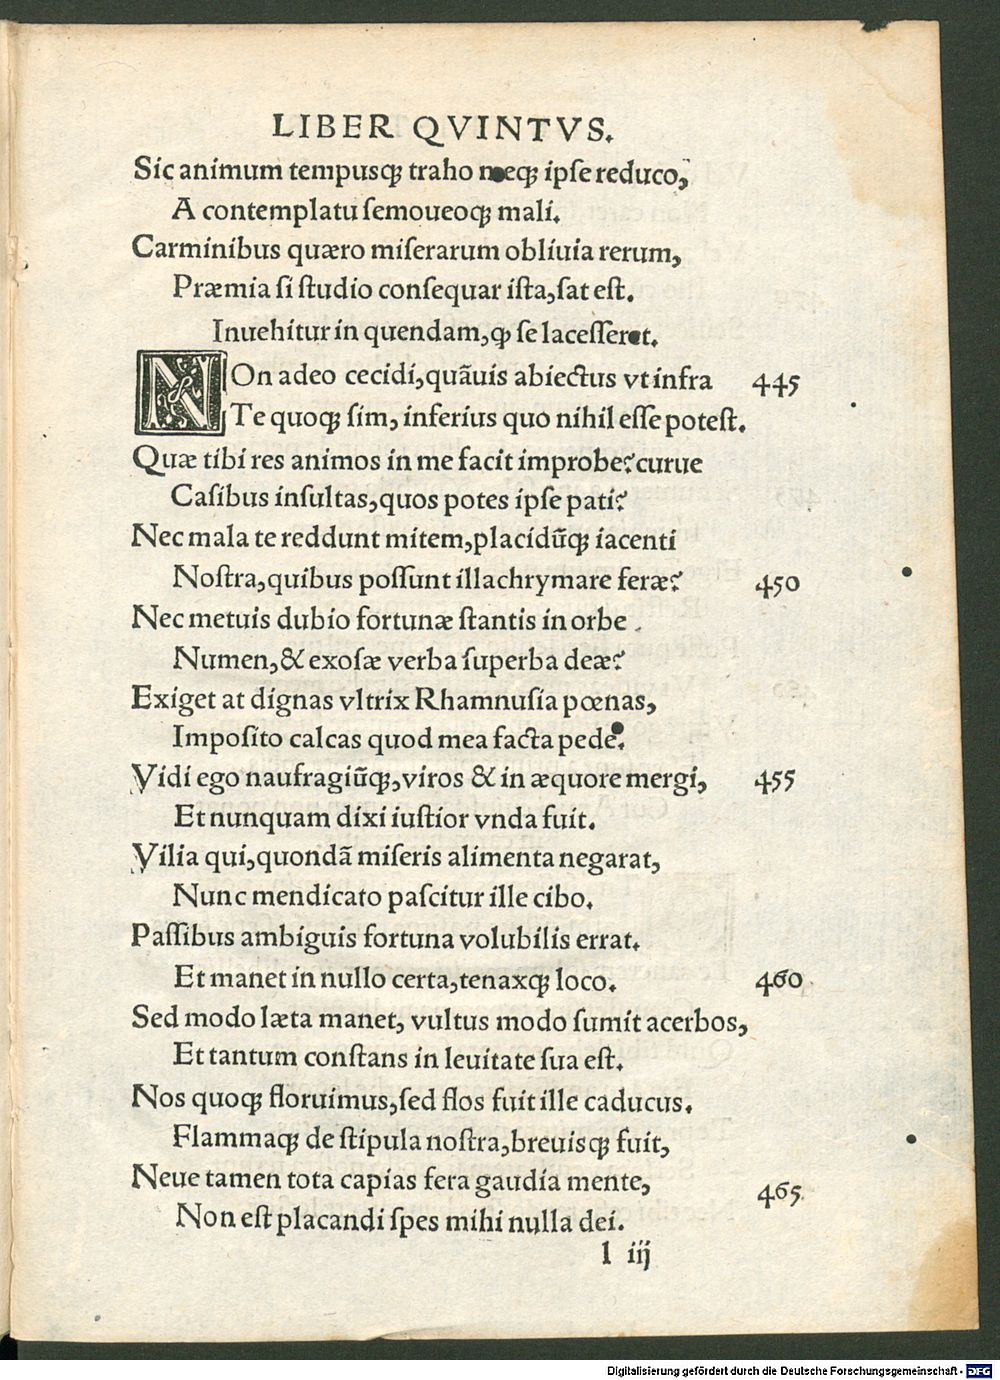 LIBER QVINTVS.
Sic animum tempusꝙ traho neꝙ ipſe reduco,
A contemplatu ſemoueoꝙ mali.
Carminibus quæro miſerarum obliuia rerum,
Præmia ſi ſtudio conſequar iſta, ſat eſt.
Inuehitur in quendam, ꝙ ſe laceſſeret.
NOn adeo cecidi, quãuis abiectus vt infra 445
Te quoꝙ ſim, inferius quo nihil eſſe poteſt.
Quæ tibi res animos in me facit improbe? curue
Caſibus inſultas, quos potes ipſe pati?
Nec mala te reddunt mitem, placidũꝙ iacenti
Noſtra, quibus poſſunt illachrymare feræ? 450
Nec metuis dubio fortunæ ſtantis in orbe
Numen, & exoſæ verba ſuperba deæ?
Exiget at dignas vltrix Rhamnuſia pœnas,
Impoſito calcas quod mea facta pede.
Vidi ego naufragiũꝙ, viros & in æquore mergi, 455
Et nunquam dixi iuſtior vnda fuit.
Vilia qui, quondã miſeris alimenta negarat,
Nunc mendicato paſcitur ille cibo.
Paſſibus ambiguis fortuna volubilis errat.
Et manet in nullo certa, tenaxꝙ loco. 460
Sed modo læta manet, vultus modo ſumit acerbos,
Et tantum conſtans in leuitate ſua eſt.
Nos quoꝙ floruimus, ſed flos fuit ille caducus.
Flammaꝙ de ſtipula noſtra, breuisꝙ fuit,
Neue tamen tota capias fera gaudia mente, 465
Non eſt placandi ſpes mihi nulla dei.
l iij
Digitalisierung gefördert durch die Deutsche Forschungsgemeinschaft - DFG